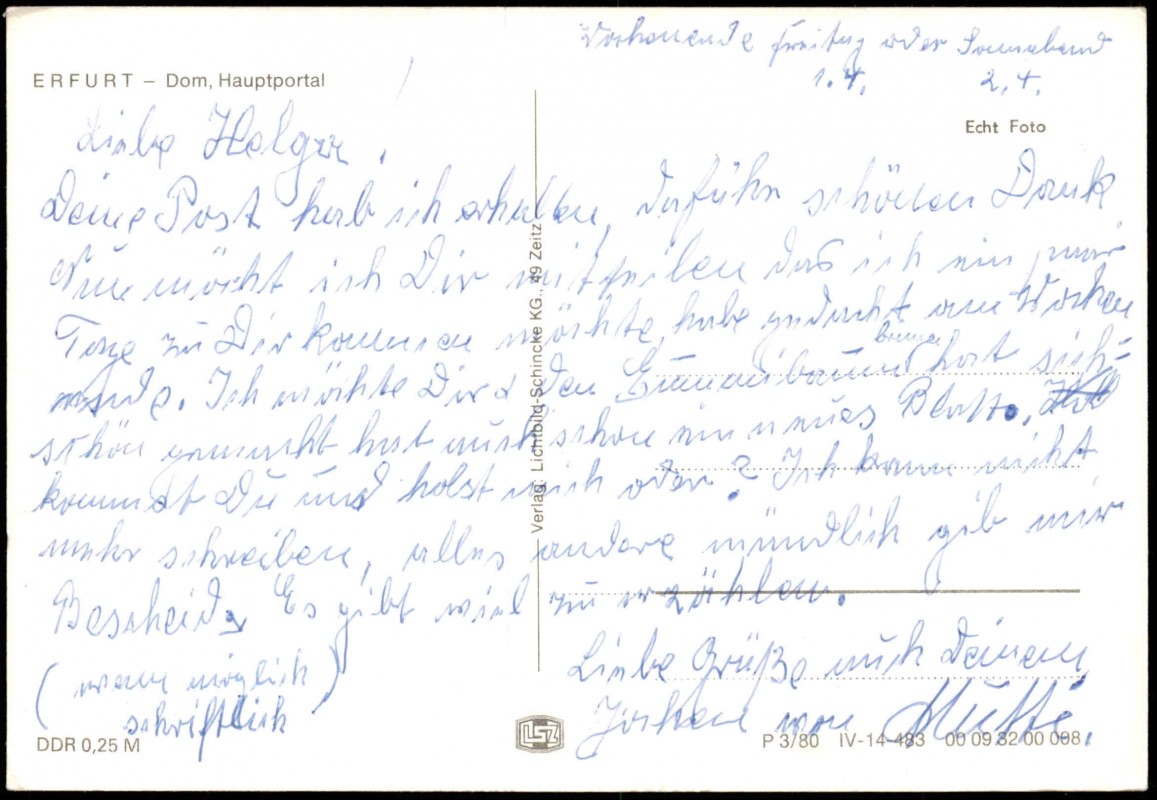 Wochenende Freitag oder Sonnabend
1.4. 2.4.
ERFURT – Dom, Hauptportal
Echt Foto
Liebe Helga!
Deine Post hab ich erhalten, daführ schönen Dank
Nun möcht ich Dir mitteilen das ich ein paar
Tage zu Dir kommen möchte, habe gedacht am Wochen
ende. Ich möchte Dir den baum hat sich
schön gemacht hat auch schon ein neues Blatt.
kommst Du und holst mich oder? Ich kann nicht
mehr schreiben, alles andere mündlich gib mir
Bescheid, Es gibt viel zu erzählen.
(wenn möglich
schriftlich)
Liebe Grüße auch Deinem
Jochen von Mutti.
Verlag: Lichtbild-Schincke KG., 49 Zeitz
DDR 0,25 M
LSZ
P 3/80 IV-14-483 00 09 32 00 008